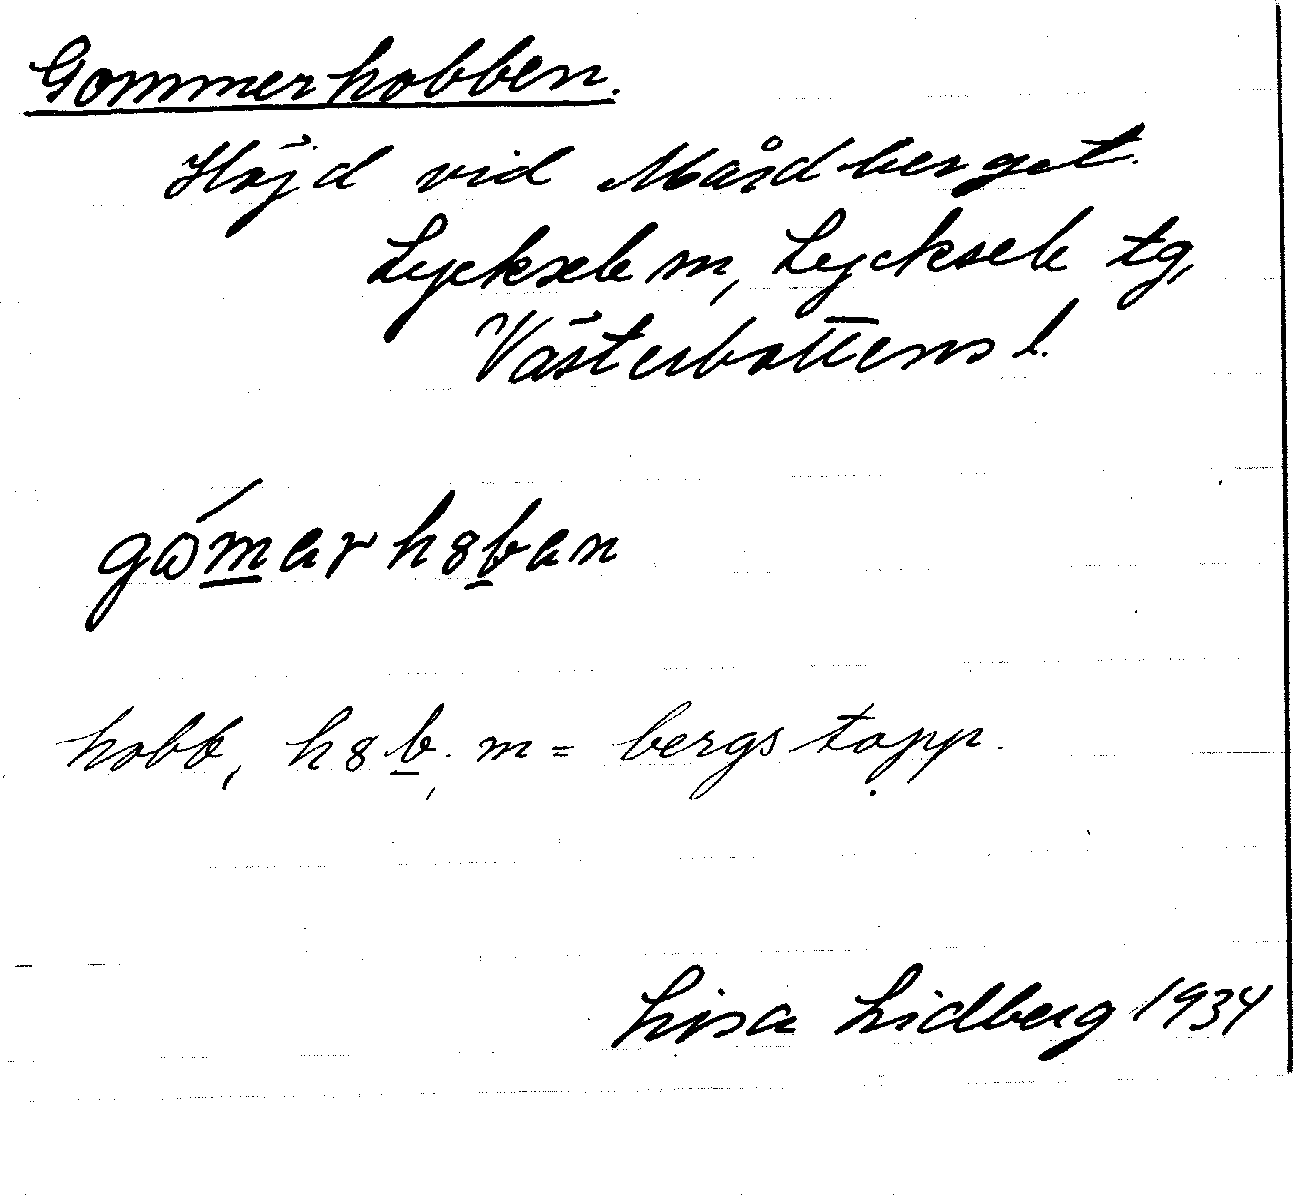 Gommerhobben.
Höjd vid Mårdberget.
Lycksele m, Lycksele tg,
Västerbottens l.
gω̇́m̲arh8b̲an
hobb, h8b̲. m = bergstopp.
Lisa Lidberg 1934